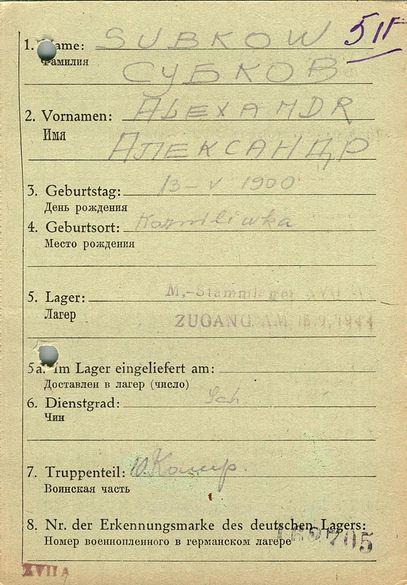 1. Name: SUBKOW 511
Фамилия СУБКОВ
2. Vornamen: ALEXANDR
Имя АЛЕКСАНДР
3. Geburtstag: 13-V 1900
День рождения
4. Geburtsort:
Место рождения
5. Lager: M.-Stammlager XVII A
Лагер ZUGANG AM 18.9.1944
5a. Im Lager eingeliefert am:
Доставлен в лагер (число)
6. Dienstgrad:
Чин
7. Truppenteil: 10. Komp.
Воинская часть
8. Nr. der Erkennungsmarke des deutschen Lagers:
Номер военнопленного в германском лагере 705
XVII A